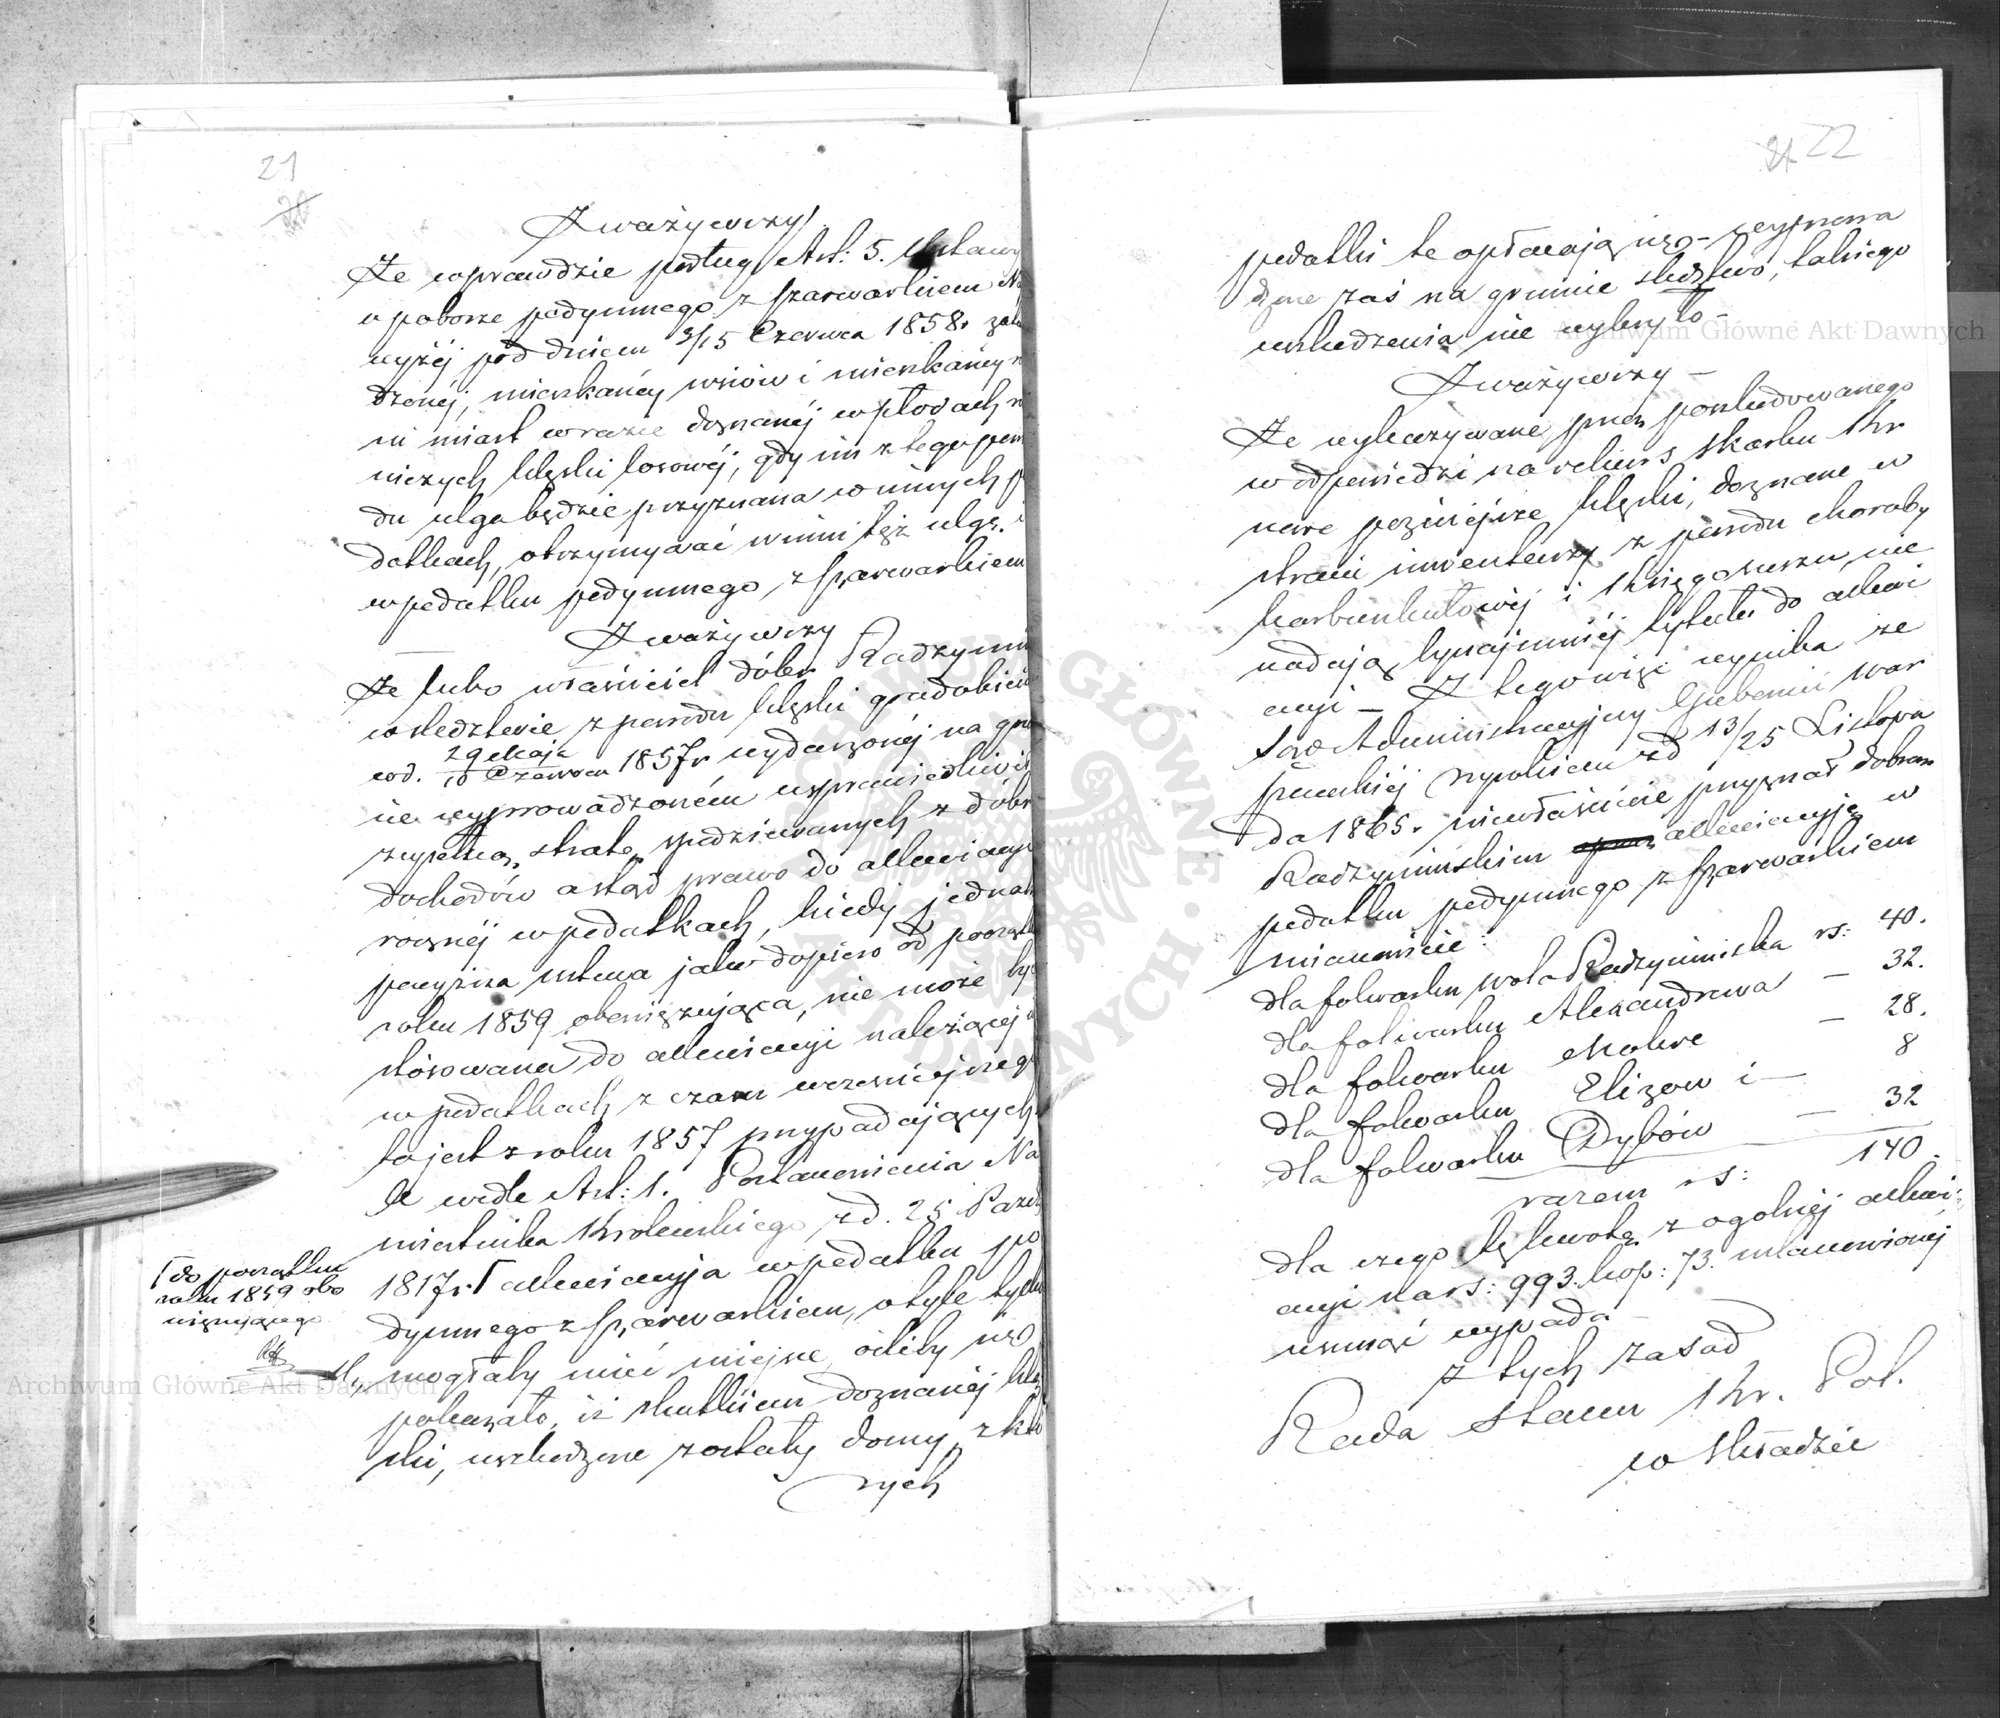 21
20
Zważywszy
Że wprawdzie podług Art: 5. Ustawy
o poborze podymnego z szarwarkiem Na
wyżéj pod dniem 3/15 Czerwca 1858r zatw
dzonéj, mieszkańcy wsiów i mieszkańcy
ni miast w razie doznanéj w płodach
niczych klęski losowéj, gdy im z tego powo
du ulga będzie przyznana w innych po
datkach, otrzymywać winni też ulgę
w podatku podymnego z szarwarkiem
Zważywszy
Że lubo właściciel dóbr Radzymin
w śledztwie z powodu klęski gradobicia
w d. 29 Maja / 10 Czerwca 1857r wydarzonéj na grun
cie wyprowadzoném usprawiedliwił
zupełną stratę spodziewanych z dóbr
dochodów a ztąd prawo do allewiacyi
rocznéj w podatkach, kiedy jednak
powyższa ustawa jako dopiero od początku
roku 1859 obowiązująca, nie może być
stósowana do allewiacyi należącéj
w podatkach z czasu wcześniejszego
to jest z roku 1857 przypadających
le wedle Art: 1. Postanowienia Na
miestnika Królewskiego z d. 25 Paźdz
1817r. Γ allewiacyja w podatku po
dymnego z szarwarkiem, o tyle tylko
mogłaby mieć miejsce, ożliby się
pokazało, iż skutkiem doznanéj klę
ski, uszkodzone zostały domy, z któ
rych
Γ do początku
roku 1859 obo
wiązującego
22
podatki te opłacają się – wyprowa
dzone zaś na gruncie śledztwo, takiego
uszkodzenia nie wykryło –
Zważywszy –
Że wykazywane przez poszkodowanego
w odpowiedzi na rekurs skarbu Kr
nowe poźniejsze klęski, doznane w
stracie inwentarzy z powodu choroby
karbunkułowéj i księgosuszu, nie
nadają bynajmniéj tytułu do allewi
acyi – Z tego więc wynika że
Sąd Administracyjny Gubernii War
szawskiéj wyrokiem z d 13/25 Listopa
da 1865. niewłaściwie przyznał dobrom
Radzymińskim allewiacyję w
podatku podymnego z szarwarkiem
mianowicie:
dla folwarku Wola Radzymińska rs: 40.
dla folwarku Alexandrowa – 32.
dla folwarku Mokre – 28.
dla folwarku Elizow i – 8
dla folwarku Dybów – 32
razem rs: 140.
dla czego tę kwotę z ogólnéj allewi
acyi na rs: 993. kop: 73. ustanowionéj
usunąć wypada
z tych zasad
Rada Stanu Kr. Pol.
w Składzie
Archiwum Główne Akt Dawnych
Archiwum Główne Akt Dawnych
ARCHIWUM GŁÓWNE AKT DAWNYCH